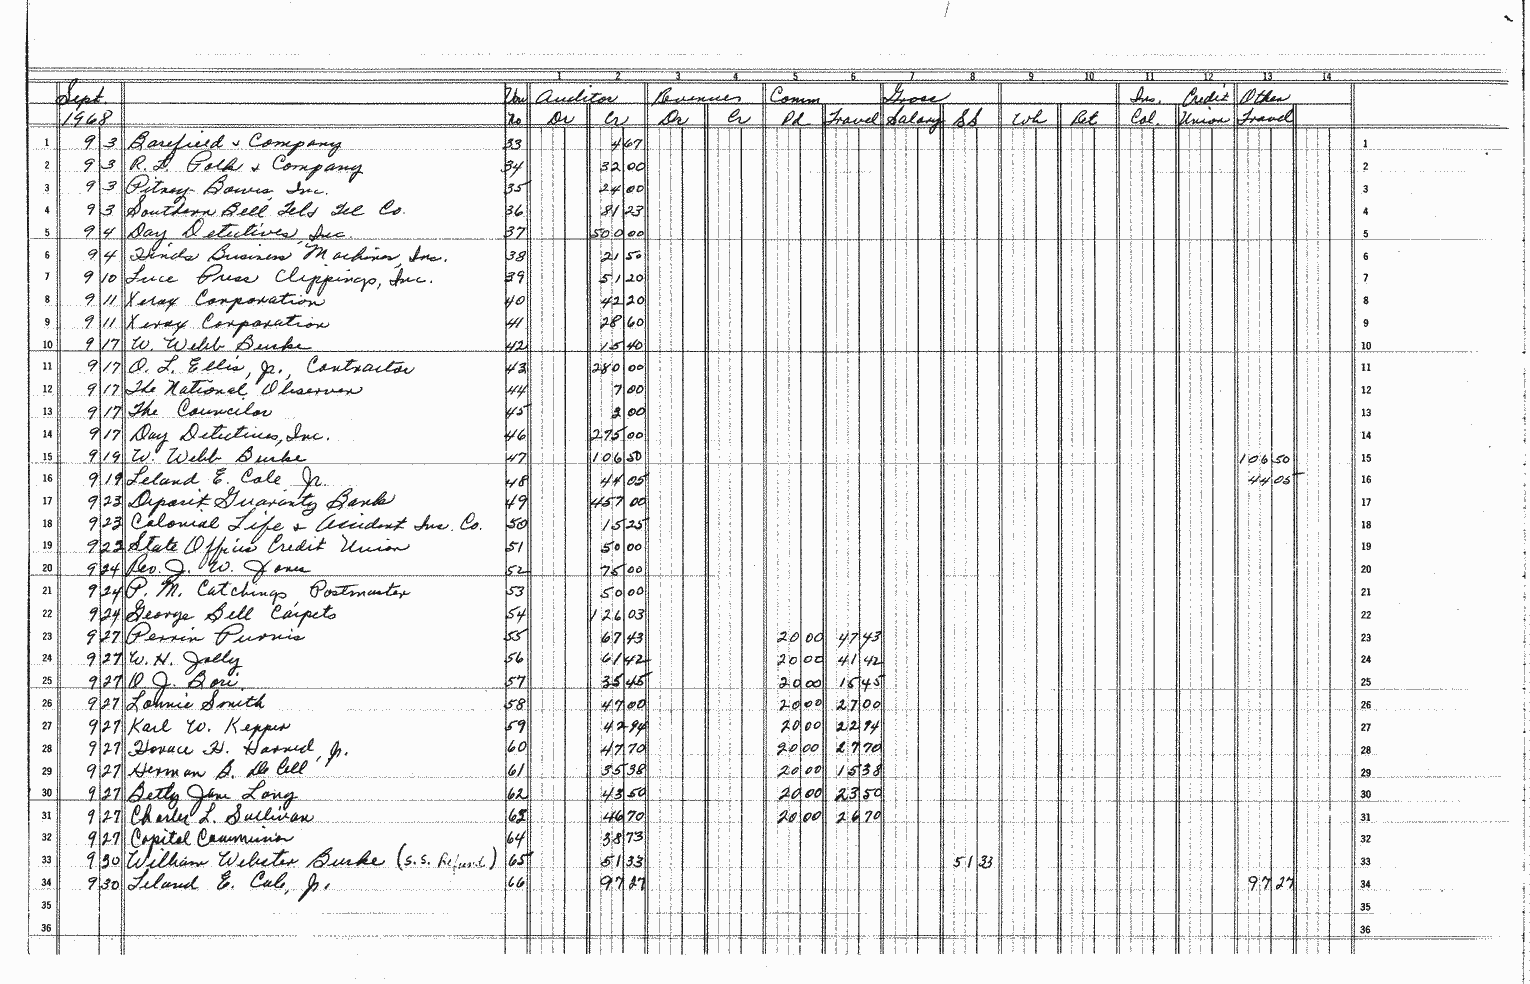 1 2 3 4 5 6 7 8 9 10 11 12 13 14
Sept. Vou Auditor Revenues Comm Gross Ins. Credit Other
1968 No Dr Cr Dr Cr Pd. Travel Salary SS Wh Ret Col. Union Travel
1 9 3 Barefield & Company 33 4 67 1
2 9 3 R. L. Polk & Company 34 32 00 2
3 9 3 Pitney Bowes, Inc. 35 24 00 3
4 9 3 Southern Bell Tel & Tel Co. 36 81 23 4
5 9 4 Day Detectives, Inc. 37 500 00 5
6 9 4 Hinds Business Machines, Inc. 38 21 50 6
7 9 10 Luce Press Clippings, Inc. 39 51 20 7
8 9 11 Xerox Corporation 40 42 20 8
9 9 11 Xerox Corporation 41 28 60 9
10 9 17 W. Webb Burke 42 15 40 10
11 9 17 O. L. Ellis, Jr., Contractor 43 280 00 11
12 9 17 The National Observer 44 7 00 12
13 9 17 The Councilor 45 2 00 13
14 9 17 Day Detectives, Inc. 46 275 00 14
15 9 19 W. Webb Burke 47 106 50 106 50 15
16 9 19 Leland E. Cole Jr. 48 44 05 44 05 16
17 9 23 Deposit Guaranty Bank 49 457 00 17
18 9 23 Colonial Life & Accident Ins. Co. 50 15 25 18
19 9 23 State Offices Credit Union 51 50 00 19
20 9 24 Rev. J. W. Jones 52 75 00 20
21 9 24 P. M. Catchings Postmaster 53 50 00 21
22 9 24 George Bell Carpets 54 126 03 22
23 9 27 Perrin Purvis 55 67 43 20 00 47 43 23
24 9 27 W. H. Jolly 56 61 42 20 00 41 42 24
25 9 27 O. J. Bori 57 35 45 20 00 15 45 25
26 9 27 Lonnie Smith 58 47 00 20 00 27 00 26
27 9 27 Karl W. Kepper 59 42 94 20 00 22 94 27
28 9 27 Horace H. Harned, Jr. 60 47 70 20 00 27 70 28
29 9 27 Herman B. DeCell 61 35 38 20 00 15 38 29
30 9 27 Betty Jane Long 62 43 50 20 00 23 50 30
31 9 27 Charles L. Sullivan 63 46 70 20 00 26 70 31
32 9 27 Capitol Commission 64 38 73 32
33 9 30 William Webster Burke (S.S. Refund) 65 51 33 51 33 33
34 9 30 Leland E. Cole, Jr. 66 97 27 97 27 34
35 35
36 36